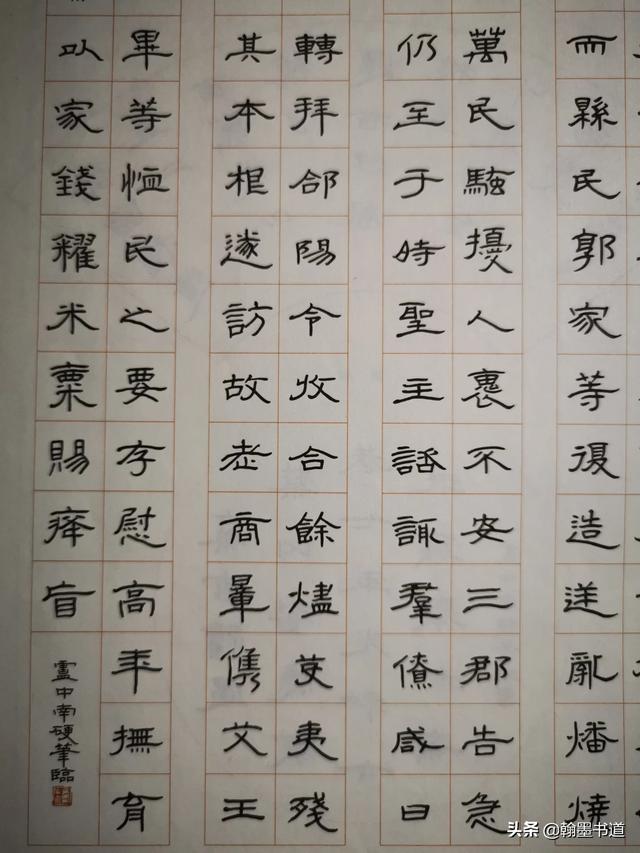 而縣民郭家等復造逆亂燔燒
萬民騷擾人裹不安三郡告急
仍至于時聖主諮諏羣僚咸曰
轉拜郃陽令收合餘燼芟夷殘
其本根遂訪故老商量儁艾王
畢等恤民之要存慰高年撫育
以家錢糴米粟賜癃盲
盧中南硬筆臨
头条 @翰墨书道